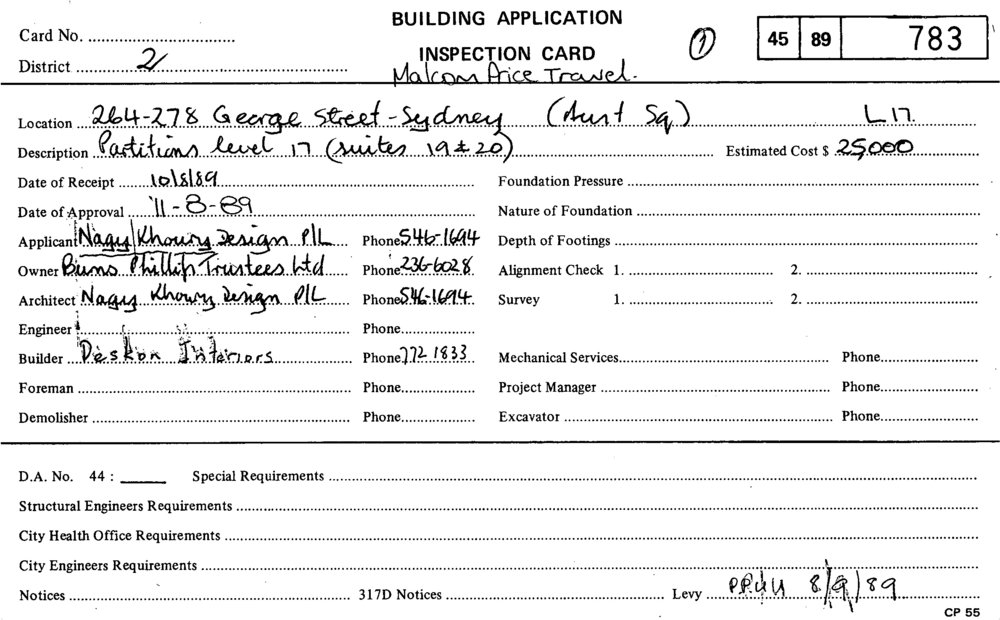 BUILDING APPLICATION
Card No. 1 45 89 783
INSPECTION CARD
District 2 Malcom Price Travel.
Location 264-278 George Street - Sydney (Aust Sq.) L 17.
Description Partitions level 17 (suites 19 & 20) Estimated Cost $ 25,000
Date of Receipt 10/8/89 Foundation Pressure
Date of Approval 11-8-89 Nature of Foundation
Applicant Nagy Khoury Design P/L Phone 546-1694 Depth of Footings
Owner Burns Phillip Trustees Ltd Phone 236-6028 Alignment Check 1. 2.
Architect Nagy Khoury Design P/L Phone 546-1694 Survey 1. 2.
Engineer Phone
Builder Deskon Interiors Phone 772 1833 Mechanical Services Phone
Foreman Phone Project Manager Phone
Demolisher Phone Excavator Phone
D.A. No. 44 : Special Requirements
Structural Engineers Requirements
City Health Office Requirements
City Engineers Requirements
Notices 317D Notices Levy 8/9/89
CP 55